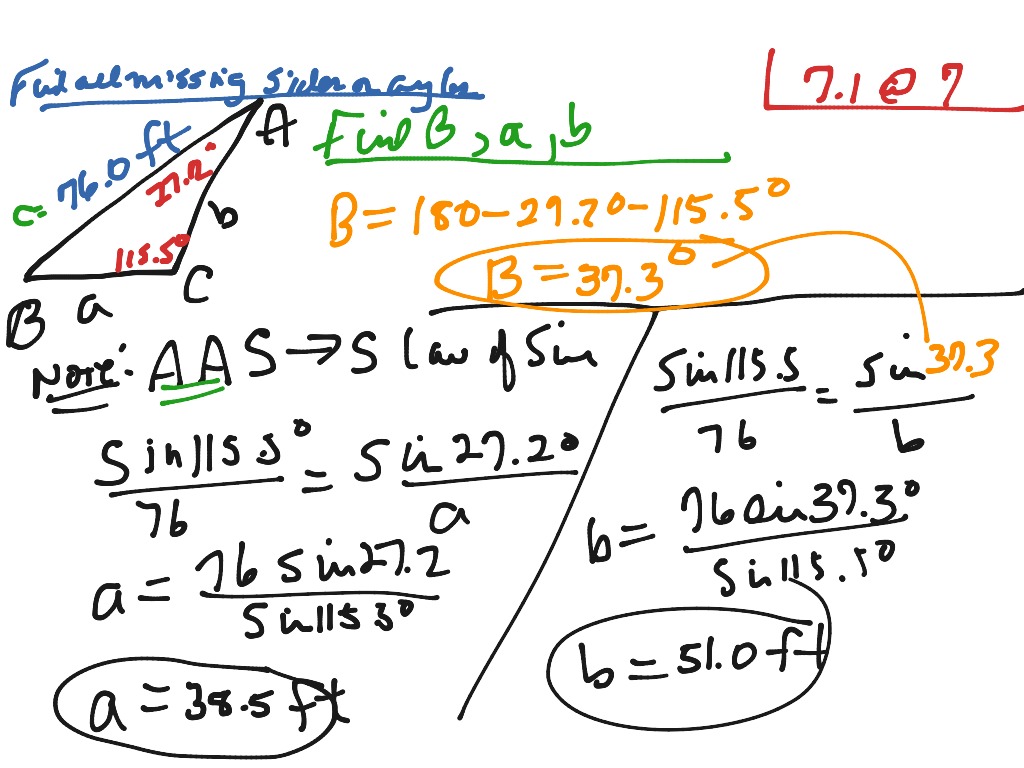 Find all missing sides or angles
7.1 @ 7
A
Find B, a, b
c= 76.0 ft
27.2°
b
115.5°
B
a
C
B = 180 - 27.2° - 115.5°
B = 37.3°
Note: AAS → S Law of Sin
sin 115.5° / 76 = sin 27.2° / a
a = 76 sin 27.2 / sin 115.5°
a = 38.5 ft
sin 115.5 / 76 = sin 37.3 / b
b = 76 sin 37.3° / sin 115.5°
b = 51.0 ft